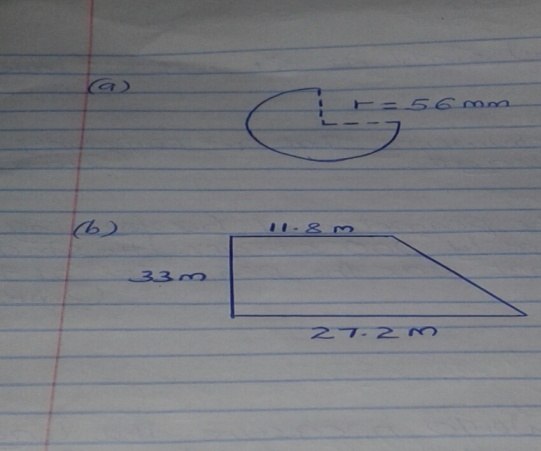 (a)
r = 56 mm
(b)
11.8 m
33 m
27.2 m